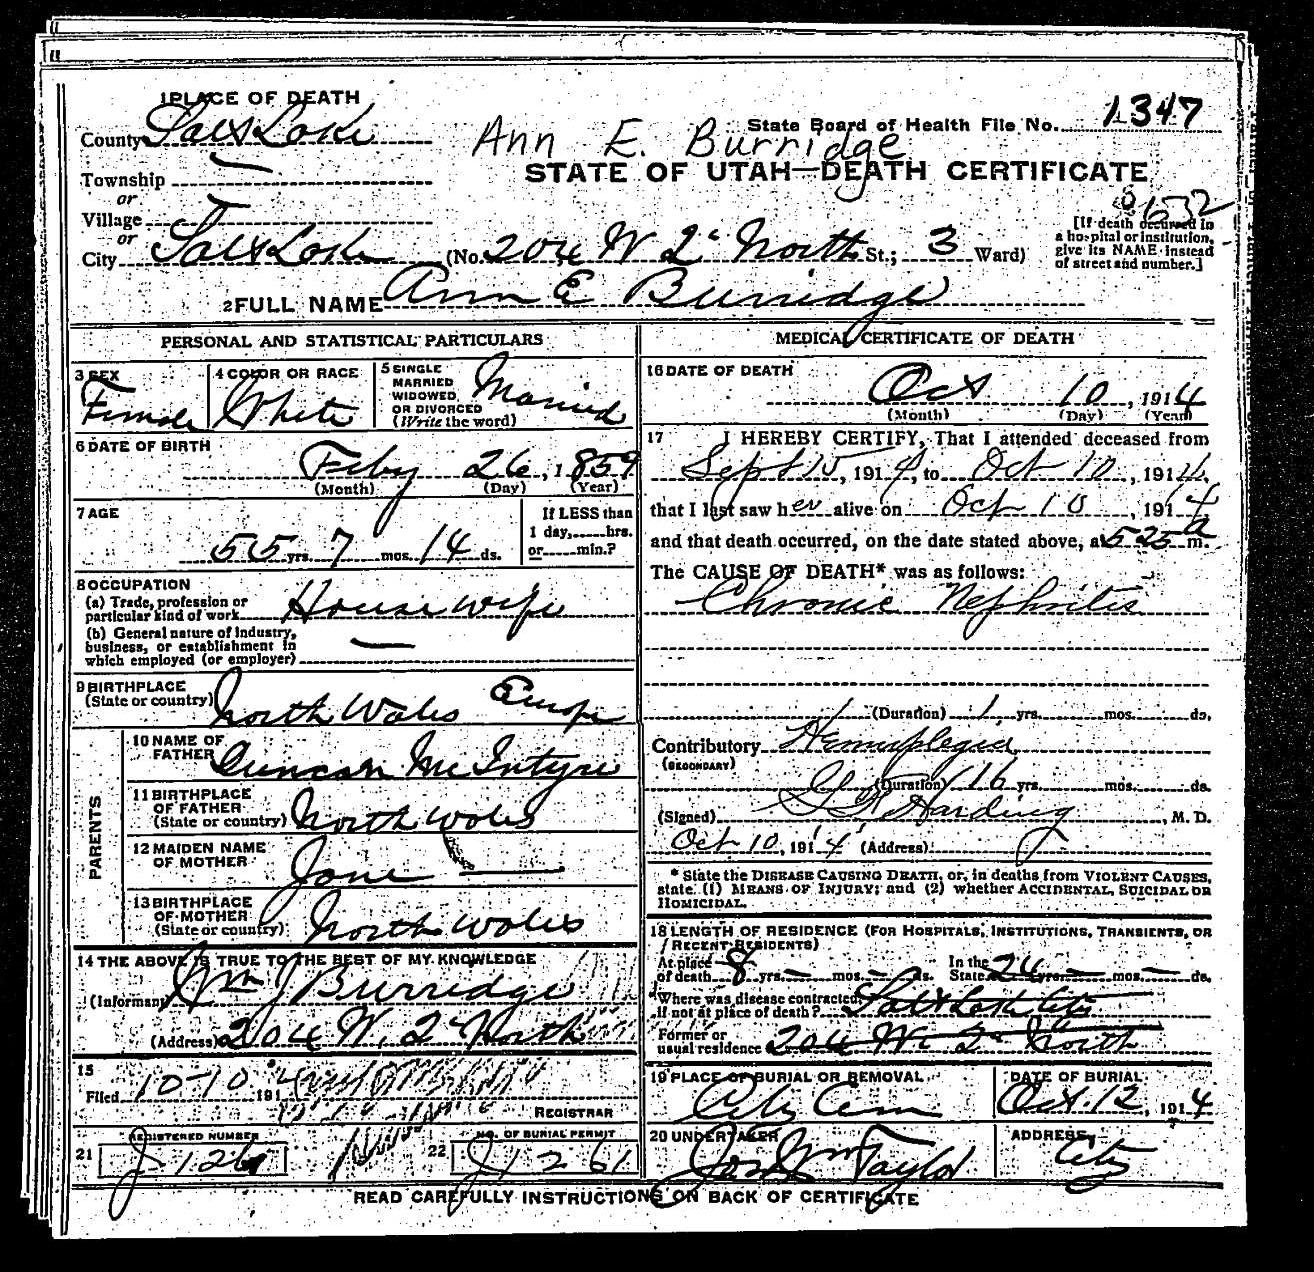 1 PLACE OF DEATH
County Salt Lake
Ann E. Burridge
State Board of Health File No. 1347
STATE OF UTAH—DEATH CERTIFICATE
Township —
or
Village
or
City Salt Lake (No. 204 W 2" North St.; 3 Ward)
[If death occurred in
a hospital or institution,
give its NAME instead
of street and number.]
2 FULL NAME Ann E Burridge
PERSONAL AND STATISTICAL PARTICULARS
3 SEX Female
4 COLOR OR RACE White
5 SINGLE
MARRIED
WIDOWED
OR DIVORCED
(Write the word) Married
6 DATE OF BIRTH
Feby 26, 1859
(Month) (Day) (Year)
7 AGE
55 yrs. 7 mos. 14 ds.
If LESS than
1 day, hrs.
or min.?
8 OCCUPATION
(a) Trade, profession or
particular kind of work House wife
(b) General nature of industry,
business, or establishment in
which employed (or employer) —
9 BIRTHPLACE
(State or country) North Wales Europe
PARENTS
10 NAME OF
FATHER Duncan McIntyre
11 BIRTHPLACE
OF FATHER
(State or country) North Wales
12 MAIDEN NAME
OF MOTHER Jane —
13 BIRTHPLACE
OF MOTHER
(State or country) North Wales
14 THE ABOVE IS TRUE TO THE BEST OF MY KNOWLEDGE
(Informant) Wm J Burridge
(Address) 204 W. 2" North
15
Filed 10-10, 1914
REGISTRAR
21 REGISTERED NUMBER
J 1261
22 NO. OF BURIAL PERMIT
J 1261
MEDICAL CERTIFICATE OF DEATH
16 DATE OF DEATH
Oct 10, 1914
(Month) (Day) (Year)
17 I HEREBY CERTIFY, That I attended deceased from
Sept 15, 1914, to Oct 10, 1914,
that I last saw her alive on Oct 10, 1914
and that death occurred, on the date stated above, at 525 a m.
The CAUSE OF DEATH* was as follows:
Chronic Nephritis
(Duration) 1 yrs. mos. ds.
Contributory Hemiplegia
(SECONDARY)
(Duration) 16 yrs. mos. ds.
(Signed) Harding, M. D.
Oct 10, 1914 (Address)
* State the DISEASE CAUSING DEATH, or, in deaths from VIOLENT CAUSES,
state (1) MEANS OF INJURY; and (2) whether ACCIDENTAL, SUICIDAL OR
HOMICIDAL.
18 LENGTH OF RESIDENCE (FOR HOSPITALS, INSTITUTIONS, TRANSIENTS, OR
RECENT RESIDENTS)
At place
of death 8 yrs. — mos. — ds. In the
State 24 yrs. — mos. — ds.
Where was disease contracted,
If not at place of death? Salt Lake City
Former or
usual residence 204 W. 2" North
19 PLACE OF BURIAL OR REMOVAL
City Cem
DATE OF BURIAL
Oct. 12, 1914
20 UNDERTAKER
Jos Wm Taylor
ADDRESS
City
READ CAREFULLY INSTRUCTIONS ON BACK OF CERTIFICATE